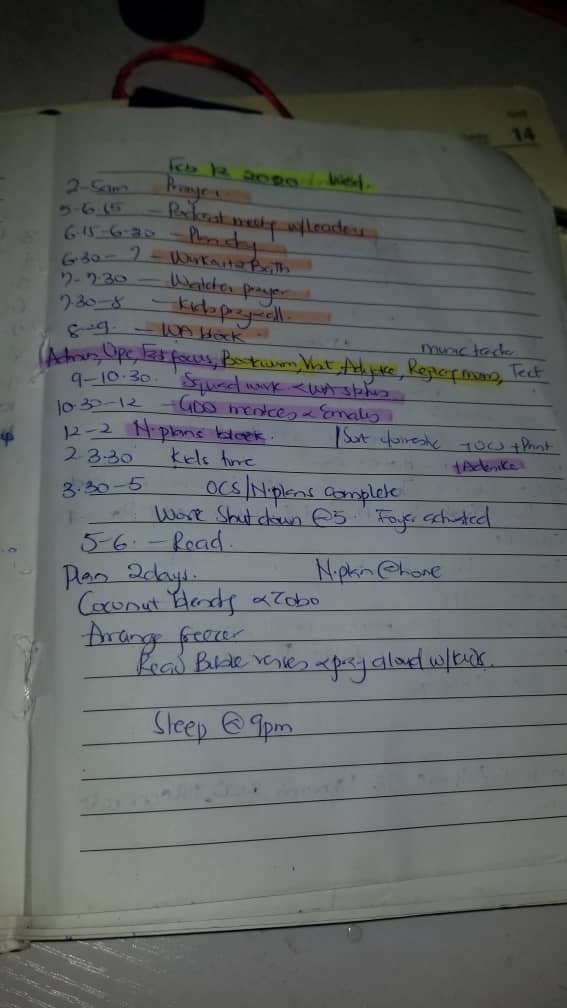 14
Feb 12 2020 Wed.
2-5am Prayer
5-6.15 - Podcast meetg w/Leaders
6.15-6-30 - Plan day
6.30-7 - Workout & Bath
7-7.30 - Watches prayer
7.30-8 - Kids pray
8-9. - WA block.
music
focus,
9-10.30. Squad work < WA status
10.30-12 - GDO & Emails
12-2 N.plans block. Sort domestic → OCS + Print
2-3.30 Kids time + Adenike
3.30-5 OCS/N.plans complete
Work Shutdown @5.
5-6. - Read.
Plan 2days. N.plan @home
Coconut blends & Zobo
Arrange freezer
Read Bible verses & pray aloud w/kids.
Sleep @ 9pm